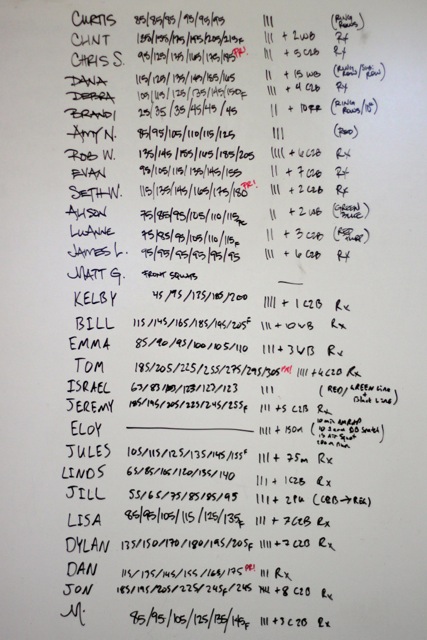 CURTIS 85/85/85/95/95/95 III (RING ROWS)
CLINT 135/155/175/195/205/215F III + 2 WB Rx
CHRIS S. 95/125/135/165/175/195 PR! III + 5 C2B Rx
DANA 115/125/135/145/155/165 II + 15 WB
DEBRA 105/115/125/135/145/150F II + 4 C2B Rx
BRANDI 25/35/35/45/45/45 II + 10 RR
AMY N. 85/95/105/110/115/125 III (RED)
ROB W. 135/145/155/165/185/205 IIII + 6 C2B Rx
EVAN 95/105/115/135/145/155 II + 7 C2B Rx
SETH W. 115/135/145/165/175/180 PR! III + 2 C2B Rx
ALISON 75/85/95/105/110/115 II + 2 WB (GREEN BLUE)
LUANNE 75/85/95/105/110/115F II + 3 C2B
JAMES L. 95/95/95/95/95/95 III + 6 C2B Rx
MATT G. FRONT SQUATS —
KELBY 45/95/135/185/200 IIII + 1 C2B Rx
BILL 115/145/165/185/195/205F III + 10 WB Rx
EMMA 85/90/95/100/105/110 III + 3 WB Rx
TOM 185/205/225/255/275/295/305 PR! IIII + 4 C2B Rx
ISRAEL 63/83/103/123/123/123 III (RED/GREEN Line + Black Line)
JEREMY 185/195/205/225/245/255F III + 5 C2B Rx
ELOY —— IIII + 150m
JULES 105/115/125/135/145/155F III + 75m Rx
LINDS 65/85/105/120/135/140 III + 1 C2B Rx
JILL 55/65/75/85/85/95 III + 2 PU
LISA 85/95/105/115/125/135F III + 7 C2B Rx
DYLAN 135/150/170/180/195/205F IIII + 7 C2B Rx
DAN 115/135/145/155/165/175 PR! III Rx
JON 185/195/205/225/245F/245 + 8 C2B Rx
M. 85/95/105/125/135/145F III + 3 C2B Rx